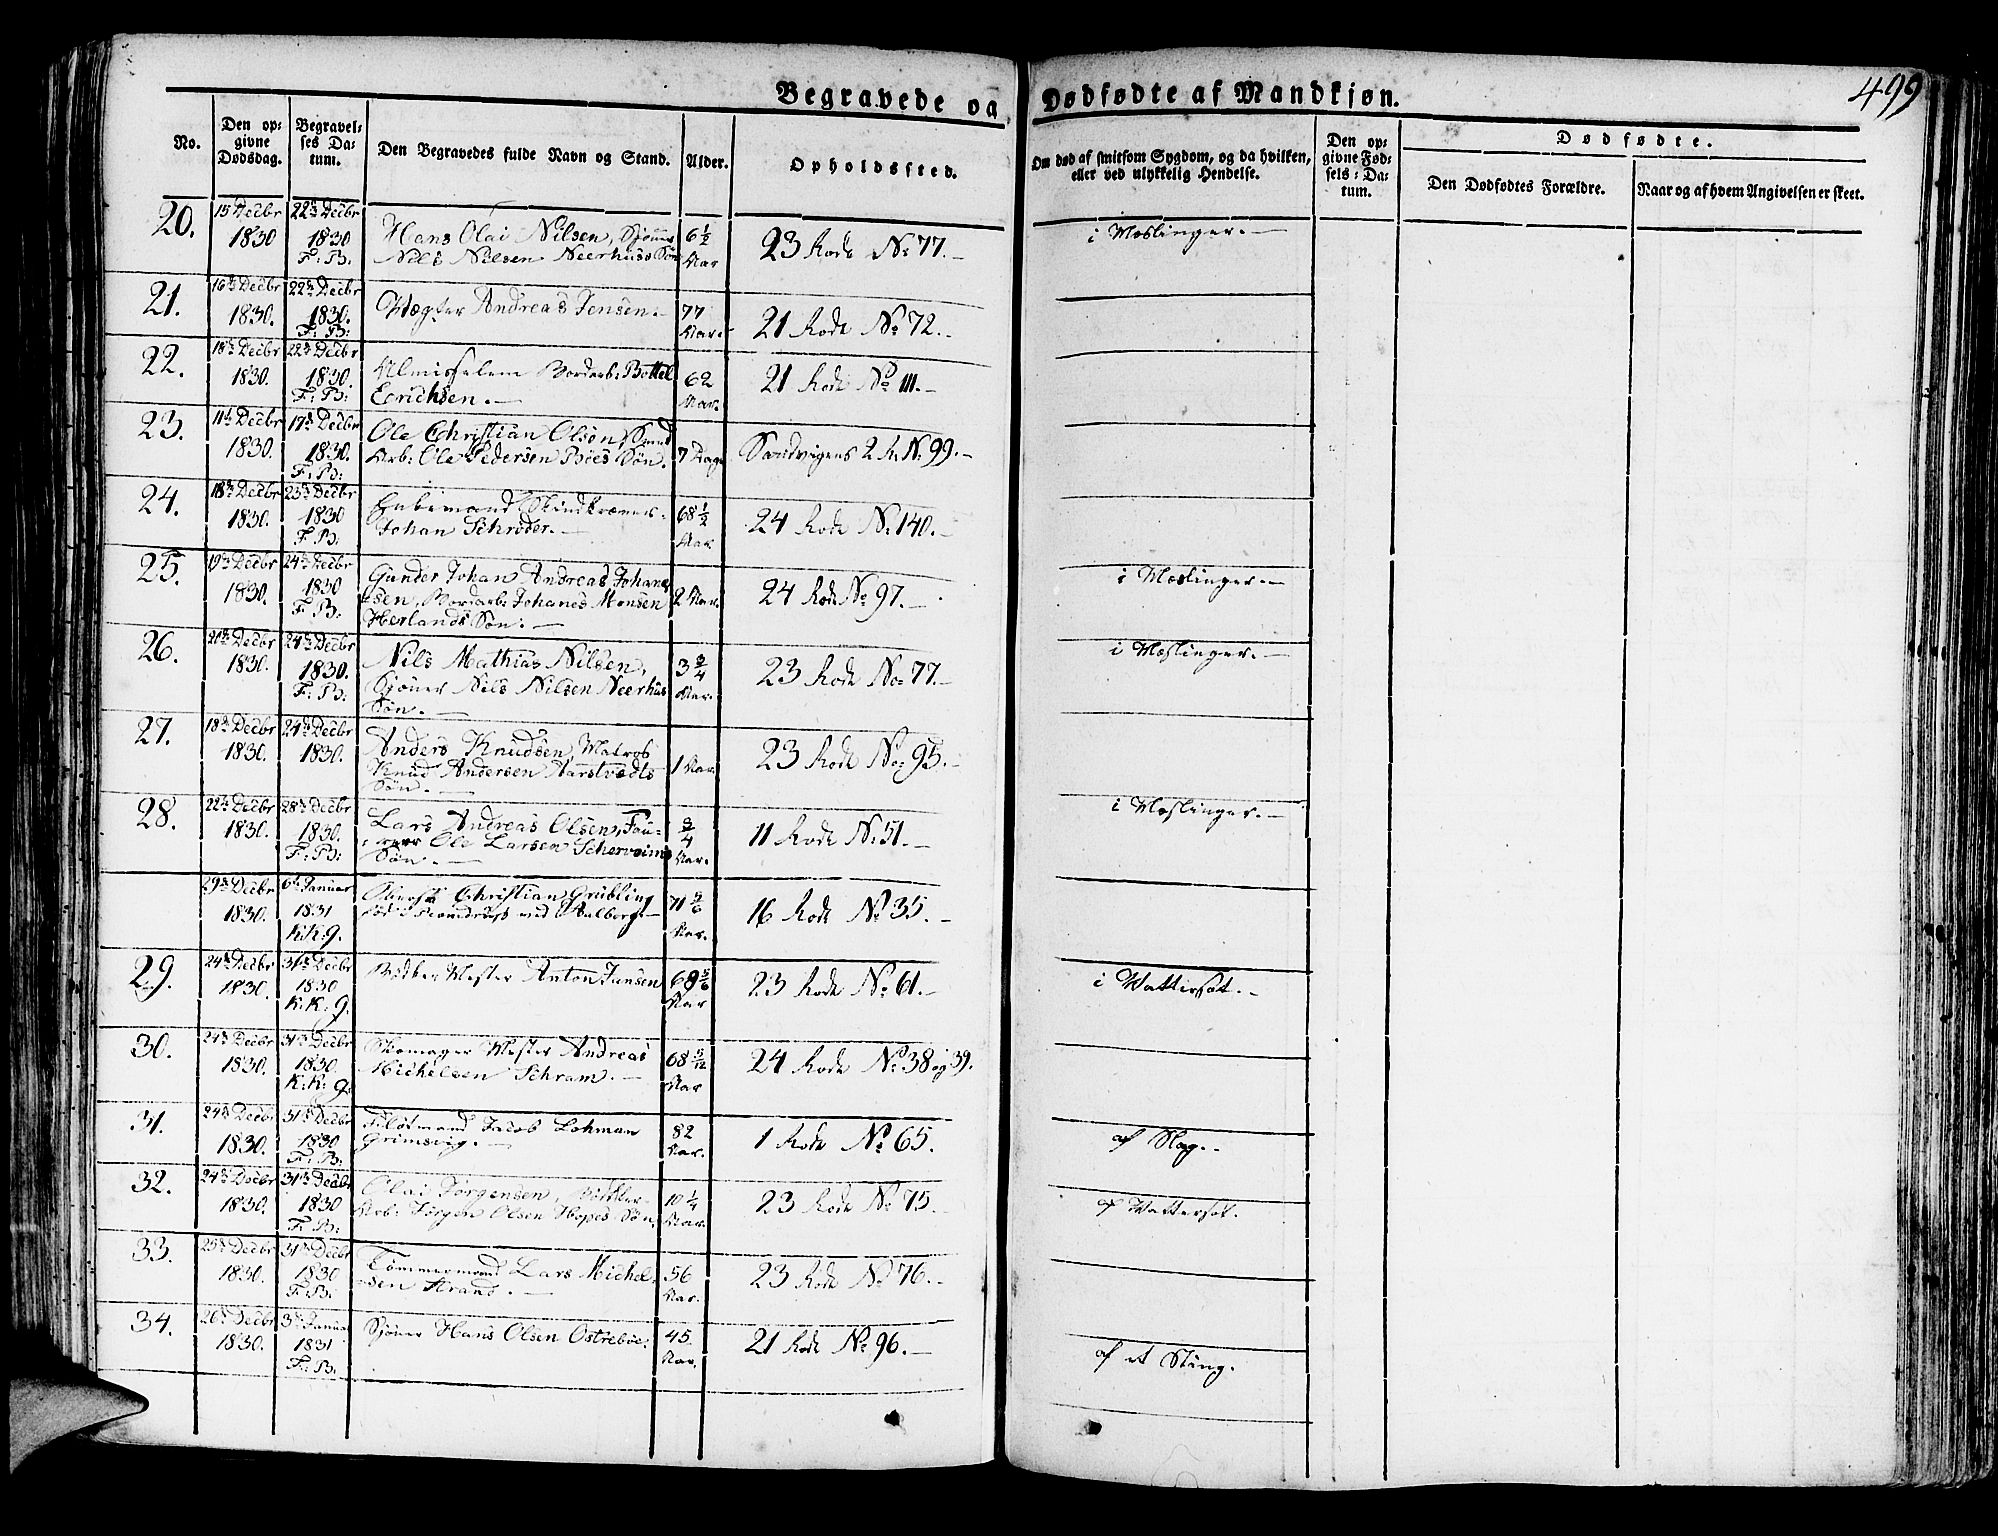 499
Begravede og Dødfødte af Mandkjøn.
No.
Den op-
givne
Dødsdag.
Begravel-
ses Da-
tum.
Den Begravedes fulde Navn og Stand.
Alder.
Opholdssted.
Om død af smitsom Sygdom, og da hvilken,
eller ved ulykkelig Hendelse.
Den op-
givne Fød-
sels-Da-
tum.
Dødfødte.
Den Dødfødtes Forældre.
Naar og af hvem Angivelsen er skeet.
20. 15 Decbr 1830 22de Decbr 1830 F: B:
Hans Olai Nilsen, Sjömr
Nils Nilsen Neerhuss Søn
6 1/2 Aar
23 Rode No 77.
i Meslinger.
21. 16de Decbr 1830. 22de Decbr 1830. F: B:
Vægter Andreas Jensen.
77 Aar.
21 Rode No 72.
22. 18de Decbr 1830. 22de Decbr 1830. F: B:
Almisselem Bordarb: Bottel
Erichsen.
62 Aar.
21 Rode No 111.
23. 11te Decbr 1830. 17de Decbr 1830. F: B:
Ole Christian Olsen,
Arb: Ole Pedersen Böes Søn.
7 Dage
Sandvigens 2 R. No 99.
24. 18de Decbr 1830. 23de Decbr 1830 F: B:
Johan Schröder.
68 1/2 Aar
24 Rode No 140.
25. 19de Decbr 1830. 24de Decbr 1830 F: B:
Gunder Johan Andreas Johane
sen, Bordarb: Johanes Monsen
Herlands Søn.
2 Aar.
24 Rode No 97.
i Meslinger.
26. 21de Decbr 1830. 24de Decbr 1830. F: B:
Nils Mathias Nilsen,
Sjömr Nils Nilsen Neerhus
Søn.
3 3/4 Aar.
23 Rode No 77.
i Meslinger.
27. 18de Decbr 1830. 24de Decbr 1830.
Anders Knudsen, Matros
Knud Andersen Aarstvedts
Søn.
1 Aar.
23 Rode No 95.
28. 22de Decbr 1830. 28de Decbr 1830. F: B:
Lars Andreas Olsen,
Ole Larsen
Søn.
3/4 Aar.
11 Rode No 51.
i Meslinger.
29de Decbr 1830. 6te Januar 1831 K.K:g.
Oberst Christian Grübling
ved Aalborg
71 5/6 Aar.
16 Rode No 35.
29. 24de Decbr 1830. 31te Decbr 1830 K: K: g.
Bödker Mester Anton Jansen
69 5/6 Aar
23 Rode No 61.
i Wattersot.
30. 24de Decbr 1830. 31te Decbr 1830. K: K: g.
Skomager Mester Andreas
Michelsen Schram.
68 5/12 Aar
24 Rode No 38 og 39.
31. 24de Decbr 1830. 31te Decbr 1830 F: B:
Jacob Lohman
Grimsvig.
82 Aar.
1 Rode No 65.
af Slag.
32. 24de Decbr 1830. 31te Decbr 1830 F: B:
Olai Jörgensen,
Arb: Jörgen Olsen Hopes Søn.
10 1/4 Aar.
23 Rode No 75.
af Wattersot.
33. 25de Decbr 1830. 31te Decbr 1830 F: B:
Tömmermand Lars Michel
sen Strand.
56 Aar.
23 Rode No 76.
34. 26de Decbr 1830. 3de Januar 1831 F: B:
Sjömr Hans Olsen Ostrebøe.
45 Aar.
21 Rode No 96.
af et Sting.